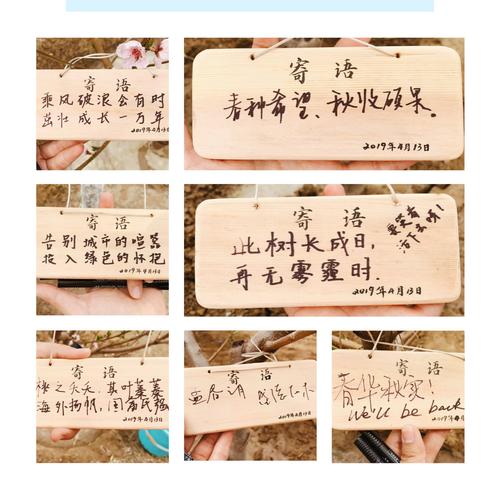 寄语
乘风破浪会有时
茁壮成长一万年
2019年4月13日
寄语
春种希望、秋收硕果。
2019年4月13日
寄语
告别城市的喧嚣
投入绿色的怀抱
2019年4月13日
寄语
此树长成日,
再无雾霾时.
2019年4月13日
要笑着
活下去呀!
寄语
桃之夭夭,其叶蓁蓁
海外扬帆,国富民强
2019年4月13日
寄语
2019年4月13日
寄语
春华秋实!
We'll be back
2019年4月13日